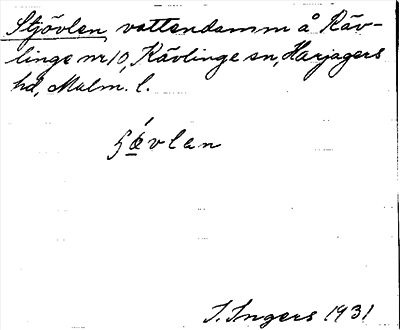 Stjövlen vattendamm å Käv-
linge nr 10, Kävlinge sn, Harjagers
hd, Malm. l.
ʃœ́vlan
I. Ingers 1931